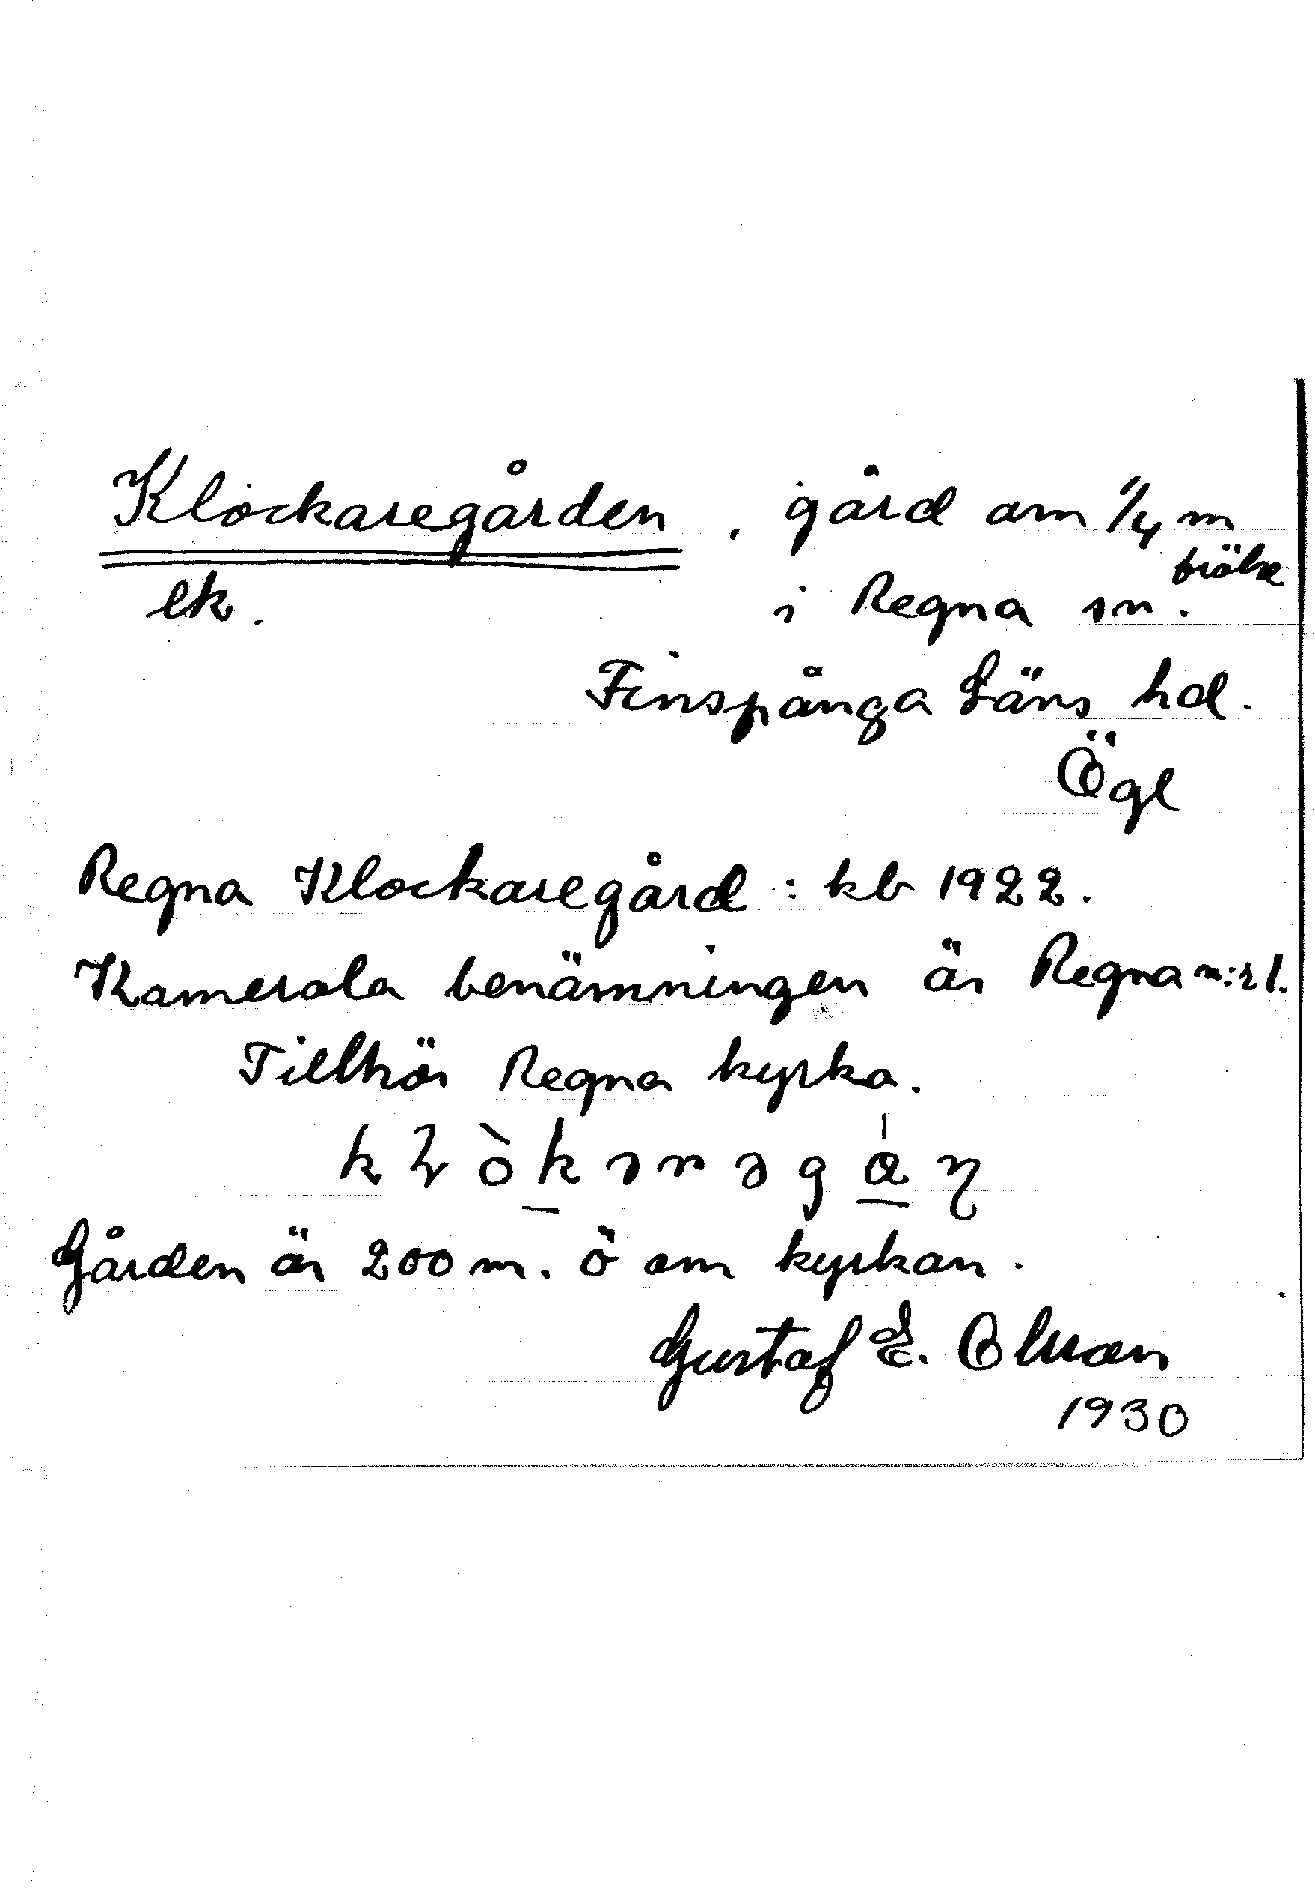 Klockaregården . gård om 1/4 m
frälse
ek. i Regna sn.
Finspånga Läns hd.
Ögl
Regna Klockaregård : kb 1922.
Kamerala benämningen är Regna n:r 1.
Tillhör Regna kyrka.
Gården är 200 m. ö om kyrkan.
Gustaf E. Olman
1930